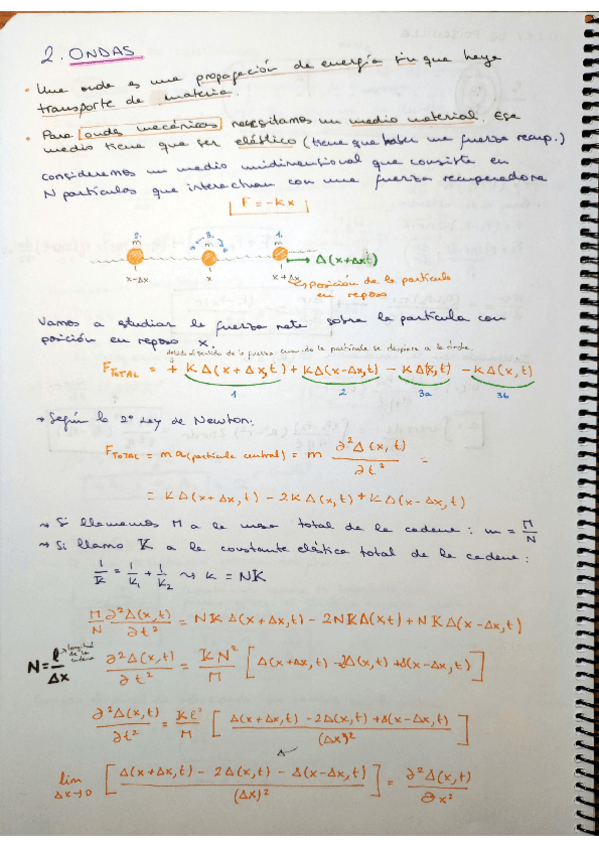 2. ONDAS
• Una onda es una propagación de energía sin que haya
transporte de materia.
• Para ondas mecánicas necesitamos un medio material. Ese
medio tiene que ser elástico (tiene que haber una fuerza recup.)
consideremos un medio unidimensional que consiste en
N partículas que interactúan con una fuerza recuperadora
F = -kx
2. 3. 1.
m m m
Δ(x+Δx,t)
x-Δx x x+Δx
posición de la partícula
en reposo
Vamos a estudiar la fuerza neta sobre la partícula con
posición en reposo x.
debido al sentido de la fuerza cuando la partícula se desplaza a la dcha.
F_TOTAL = + KΔ(x+Δx,t) + KΔ(x-Δx,t) - KΔ(x,t) - KΔ(x,t)
1 2 3a 3b
→ Según la 2ª Ley de Newton:
F_TOTAL = m a (partícula central) = m ∂²Δ(x,t)/∂t² =
= KΔ(x+Δx,t) - 2KΔ(x,t) + KΔ(x-Δx,t)
→ Si llamamos M a la masa total de la cadena: m = M/N
→ Si llamo 𝕂 a la constante elástica total de la cadena:
1/𝕂 = 1/K₁ + 1/K₂ ⇝ k = N𝕂
M/N ∂²Δ(x,t)/∂t² = N𝕂Δ(x+Δx,t) - 2N𝕂Δ(x,t) + N𝕂Δ(x-Δx,t)
N = ℓ/Δx → longitud de la cadena
∂²Δ(x,t)/∂t² = 𝕂N²/M [Δ(x+Δx,t) - 2Δ(x,t) + Δ(x-Δx,t)]
∂²Δ(x,t)/∂t² = 𝕂ℓ²/M [Δ(x+Δx,t) - 2Δ(x,t) + Δ(x-Δx,t)/(Δx)²]
lim Δx→0 [Δ(x+Δx,t) - 2Δ(x,t) - Δ(x-Δx,t)/(Δx)²] = ∂²Δ(x,t)/∂x²